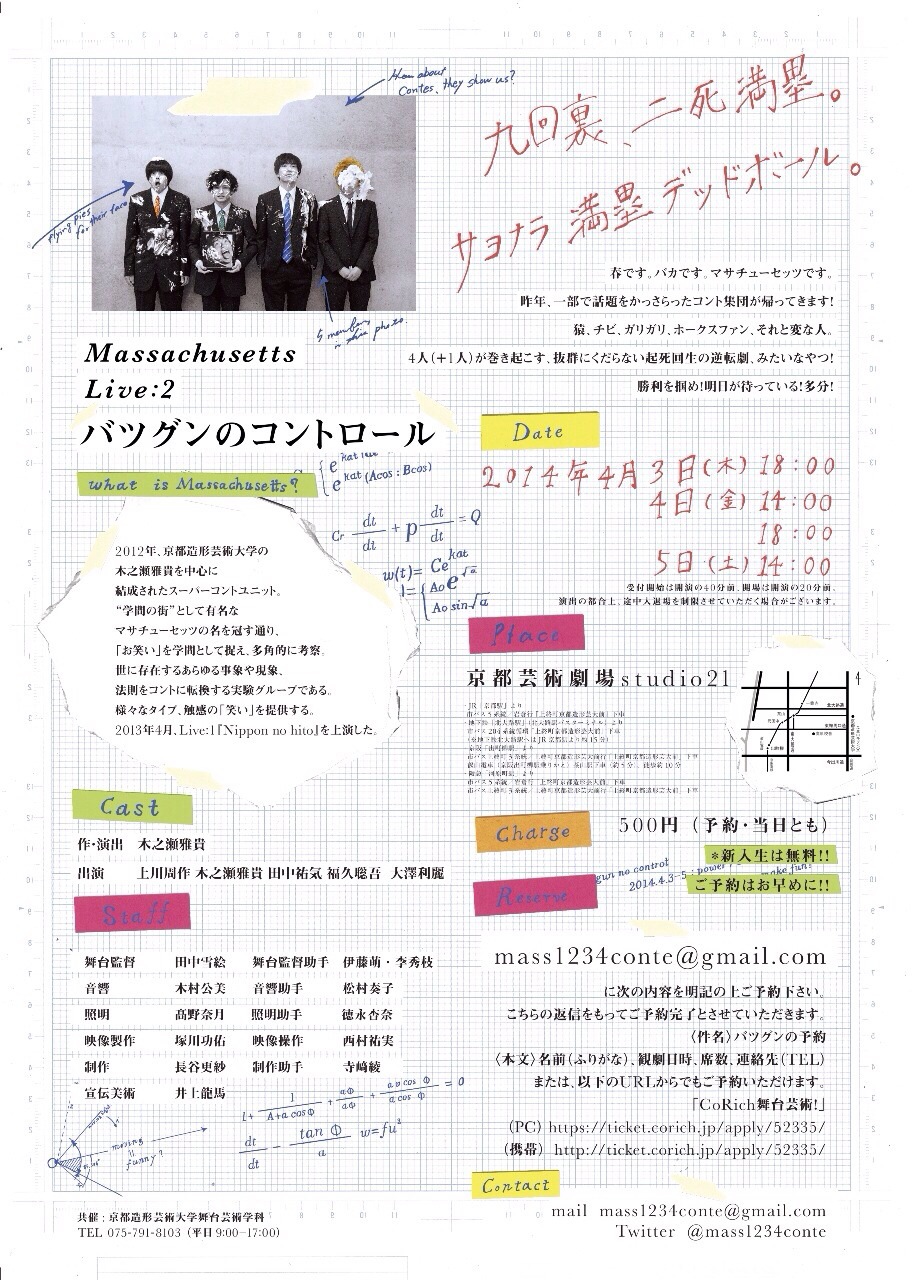 How about
Contes, they show us?
flying pies
for their face
5 members
in this photo.
九回裏、二死満塁。
サヨナラ満塁デッドボール。
春です。バカです。マサチューセッツです。
昨年、一部で話題をかっさらったコント集団が帰ってきます!
猿、チビ、ガリガリ、ホークスファン、それと変な人。
4人(+1人)が巻き起こす、抜群にくだらない起死回生の逆転劇、みたいなやつ!
勝利を掴め!明日が待っている!多分!
Massachusetts
Live:2
バツグンのコントロール
what is Massachusetts?
2012年、京都造形芸術大学の
木之瀬雅貴を中心に
結成されたスーパーコントユニット。
“学問の街”として有名な
マサチューセッツの名を冠す通り、
「お笑い」を学問として捉え、多角的に考察。
世に存在するあらゆる事象や現象、
法則をコントに転換する実験グループである。
様々なタイプ、触感の「笑い」を提供する。
2013年4月、Live:1『Nippon no hito』を上演した。
e^kat (Acos : Bcos)
Cr dt/di + p dt/dt = Q
w(t)= Ce^kat
Ao sin√a
Date
2014年4月3日(木) 18:00
4日(金) 14:00
18:00
5日(土) 14:00
受付開始は開演の40分前、開場は開演の20分前。
演出の都合上、途中入退場を制限させていただく場合がございます。
Place
京都芸術劇場studio21
Cast
作・演出 木之瀬雅貴
出演 上川周作 木之瀬雅貴 田中祐気 福久聡吾 大澤利麗
Staff
舞台監督 田中雪絵 舞台監督助手 伊藤萌・李秀枝
音響 木村公美 音響助手 松村奏子
照明 髙野奈月 照明助手 徳永杏奈
映像製作 塚川功佑 映像操作 西村祐実
制作 長谷更紗 制作助手 寺﨑綾
宣伝美術 井上龍馬
moving = funny?
dt/dt - tan Φ/a w=fu²
Charge
500円(予約・当日とも)
*新入生は無料!!
ご予約はお早めに!!
gun no control
2014.4.3-5 : power
make fun!
Reserve
mass1234conte@gmail.com
に次の内容を明記の上ご予約下さい。
こちらの返信をもってご予約完了とさせていただきます。
〈件名〉バツグンの予約
〈本文〉名前(ふりがな)、観劇日時、席数、連絡先(TEL)
または、以下のURLからでもご予約いただけます。
「CoRich舞台芸術!」
(PC) https://ticket.corich.jp/apply/52335/
(携帯) http://ticket.corich.jp/apply/52335/
Contact
mail mass1234conte@gmail.com
Twitter @mass1234conte
共催:京都造形芸術大学舞台芸術学科
TEL 075-791-8103 (平日9:00−17:00)